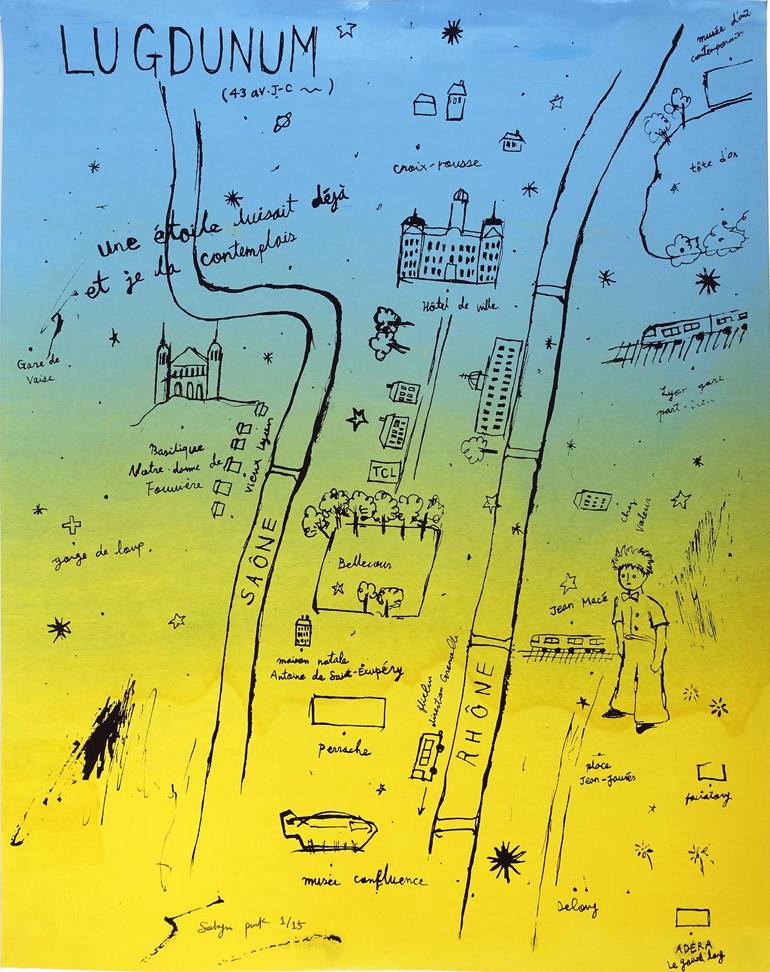 LUGDUNUM
(43 av. J-C ~)
musée d'art
contemporain
croix-rousse
tête d'or
une étoile luisait déjà
et je la contemplais
Hôtel de ville
Gare de
Vaise
Lyon gare
part-dieu
Basilique
Notre-dame de
Fourvière
vieux Lyon
TCL
chez
Valeur
gorge de loup.
Bellecour
SAÔNE
Jean Macé
maison natale
Antoine de Saint-Exupéry
direction Grenoble
RHÔNE
Perrache
place
Jean-Jaurès
factatory
musée confluence
1/15
ADÉRA